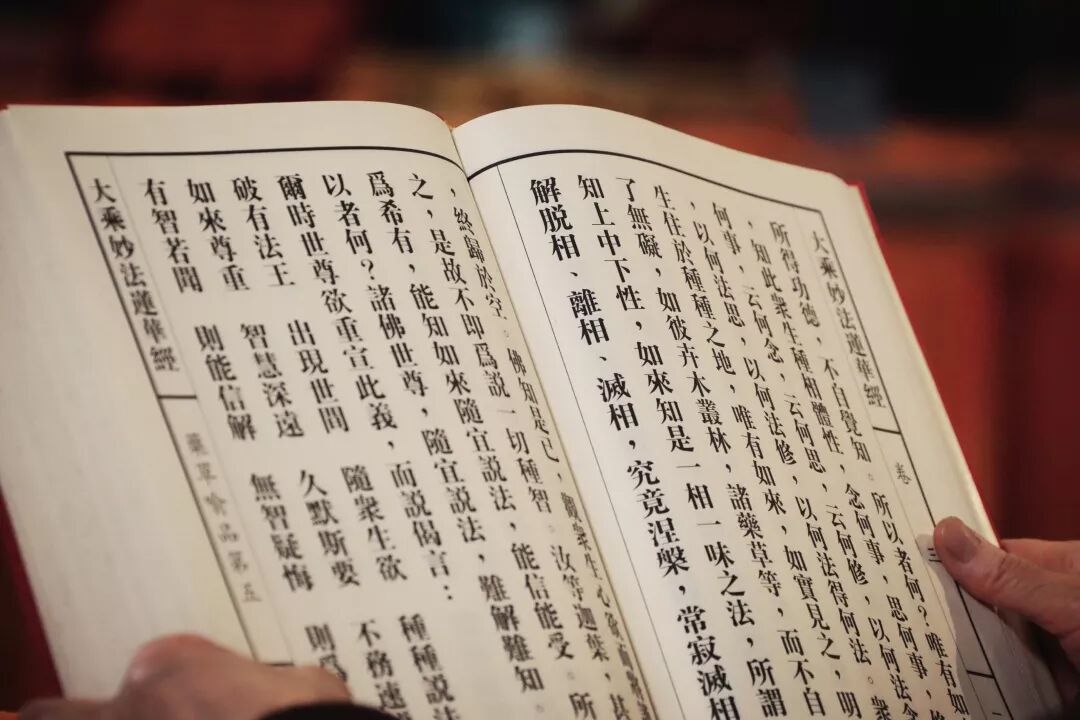 大乘妙法蓮華經 卷三
所得功德，不自覺知。所以者何？唯有如
，知此衆生種相體性，念何事，思何事，
何事，云何念，云何思，云何修，以何法念
，以何法思，以何法修，以何法得何法。衆
生住於種種之地，唯有如來，如實見之，明
了無礙，如彼卉木叢林，諸藥草等，而不自
知上中下性，如來知是一相一味之法，所謂
解脫相、離相、滅相，究竟涅槃，常寂滅相
，終歸於空。佛知是已，觀衆生心欲而將護
之，是故不即爲說一切種智。汝等迦葉，甚
爲希有，能知如來隨宜說法，能信能受。所
以者何？諸佛世尊，隨宜說法，難解難知。
爾時世尊欲重宣此義，而說偈言：
破有法王 出現世間 隨衆生欲 種種說法
如來尊重 智慧深遠 久默斯要 不務速
有智若聞 則能信解 無智疑悔 則爲
大乘妙法蓮華經 藥草喻品第五